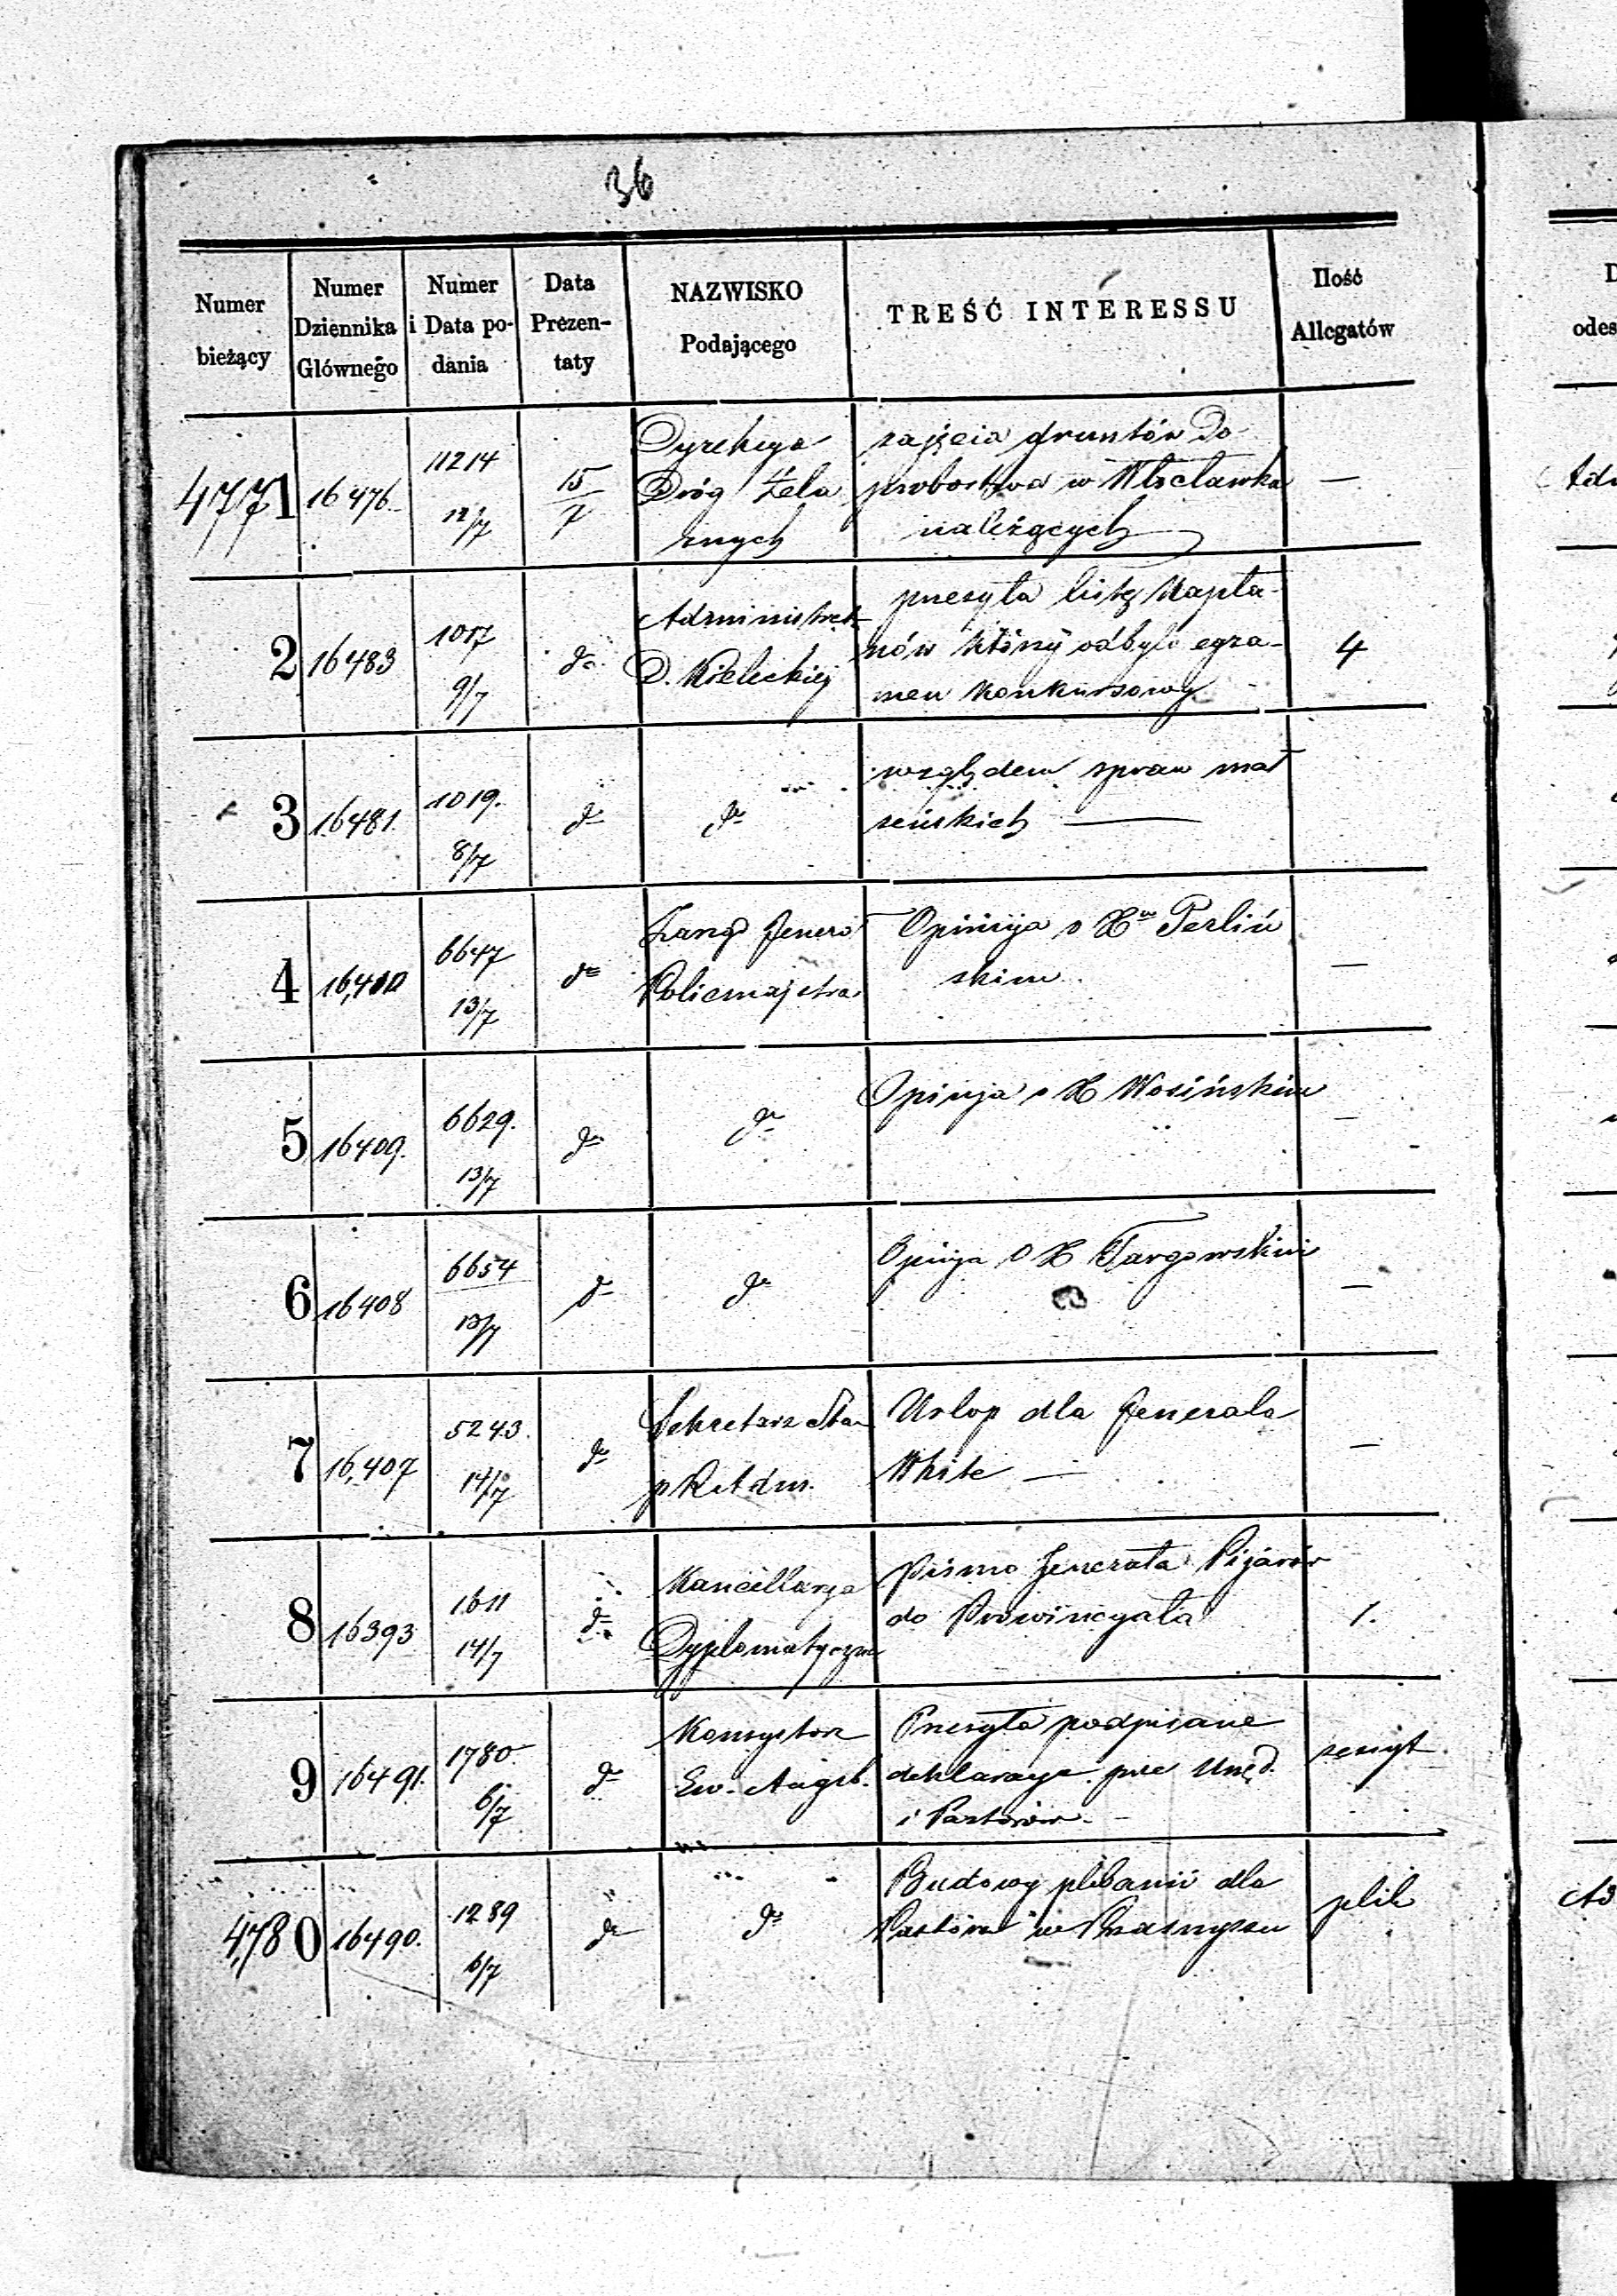 36
Numer bieżący | Numer Dziennika Głównego | Numer i Data podania | Data Prezentaty | NAZWISKO Podającego | TREŚĆ INTERESSU | Ilość Allegatów
4771 | 16476 | 11214 12/7 | 15/7 | Dyrekcya Dróg Żelaznych | zajęcia gruntów do probostwa w Włocławku należących | —
2 | 16483 | 1017 9/7 | do | Administrat. D. Kieleckiej | przesyła listę Kapłanów którzy odbyli egzamen konkursowy | 4
3 | 16481. | 1019. 8/7 | do | do | względem spraw małżeńskich —
4 | 6647 13/7 | do | Zarząd Jenerał Policmajstra | Opinija o X. Perlińskim | —
5 | 16409. | 6629. 13/7 | do | do | Opinja o X Wosińskim | —
6 | 16408 | 6654 13/7 | do | do | Opinja o X Targowskim | —
7 | 16,407 | 5243. 14/7 | do | Sekretarz Stan | Urlop dla Jenerała White — | —
8 | 16393 | 1611 14/7 | do | Kancellarya Dyplomatyczna | Pismo Jenerała Pijarów do Prowincyała | 1.
9 | 16491. | 1780. 6/7 | do | Konsystorz Ew. Augsb. | Przesyła podpisane deklaracye prze Urzęd. i Pastorów. | zeszyt
4780 | 16490. | 1289 6/7 | do | do | Budowy plebanii dla Pastora w Przasnyszu | plik